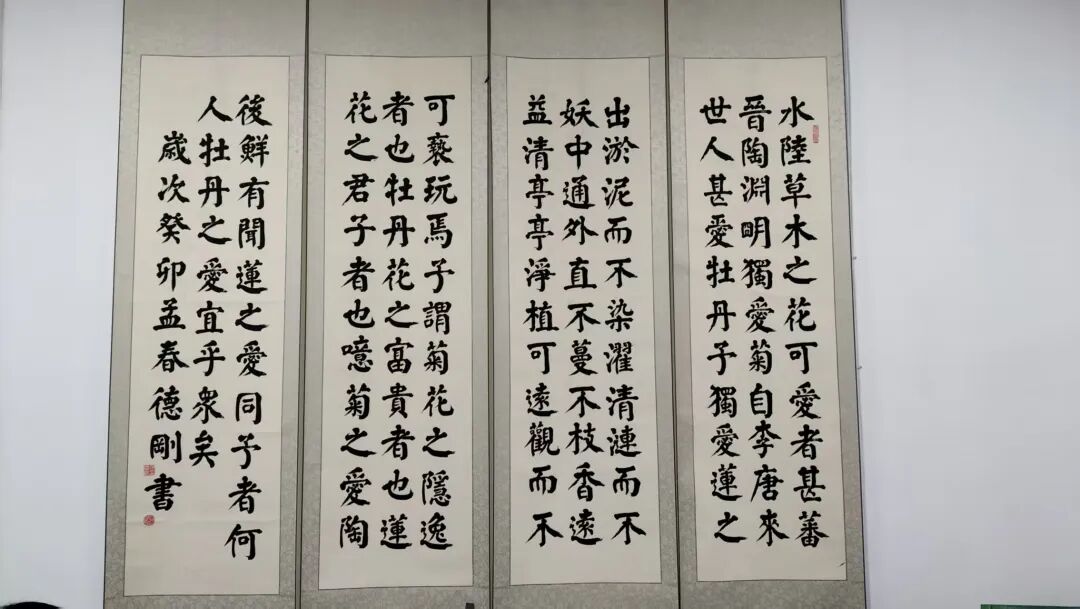 水陸草木之花可愛者甚蕃
晉陶淵明獨愛菊自李唐來
世人甚愛牡丹予獨愛蓮之
出淤泥而不染濯清漣而不
妖中通外直不蔓不枝香遠
益清亭亭淨植可遠觀而不
可褻玩焉予謂菊花之隱逸
者也牡丹花之富貴者也蓮
花之君子者也噫菊之愛陶
後鮮有聞蓮之愛同予者何
人牡丹之愛宜乎衆矣
歲次癸卯孟春德剛書